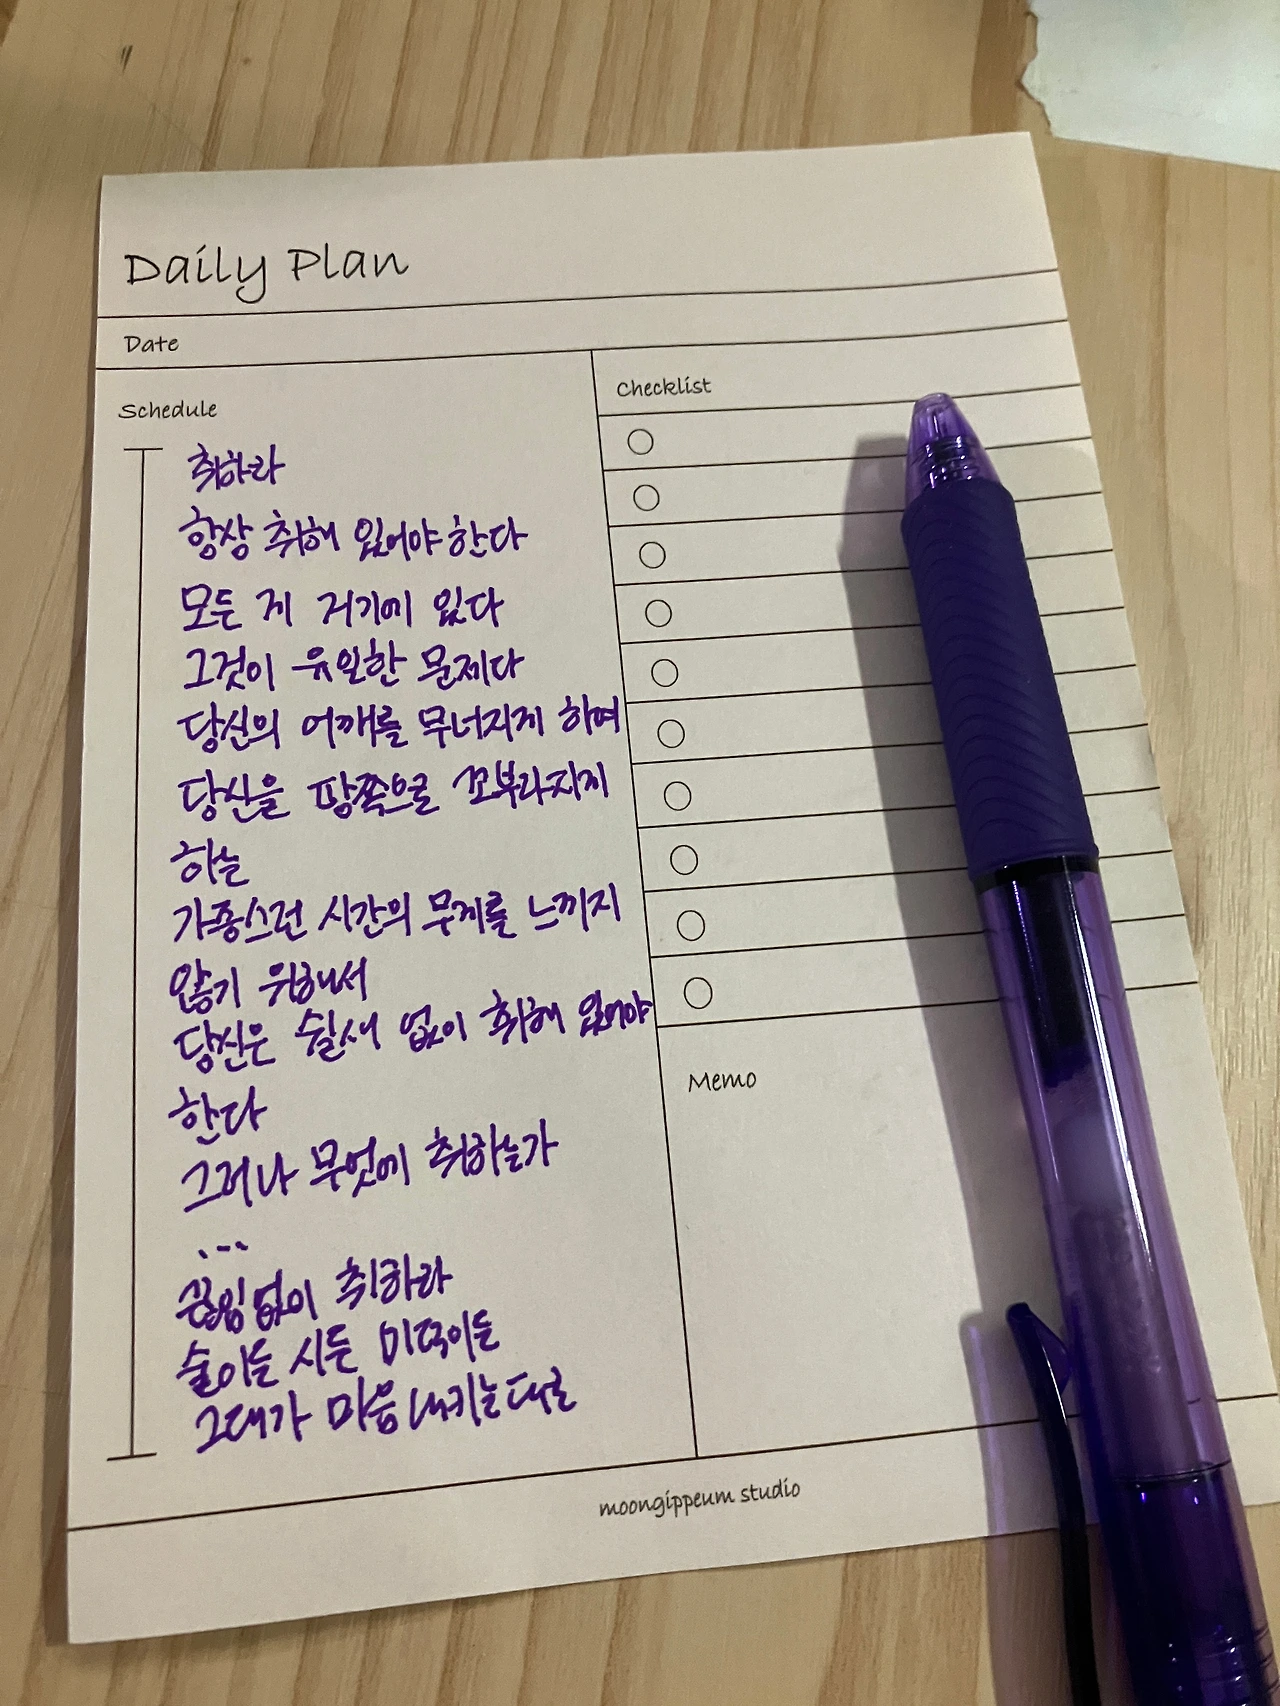 Daily Plan
Date
Schedule
취하라
항상 취해 있어야 한다
모든 게 거기에 있다
그것이 유일한 문제다
당신의 어깨를 무너지게 하여
당신을 땅쪽으로 꼬부라지게
하는
가증스런 시간의 무게를 느끼지
않기 위해서
당신은 쉴새 없이 취해 있어야
한다
그러나 무엇에 취하는가
...
끊임없이 취하라
술이든 시든 미덕이든
그대가 마음 내키는대로
Checklist
Memo
moongippeum studio